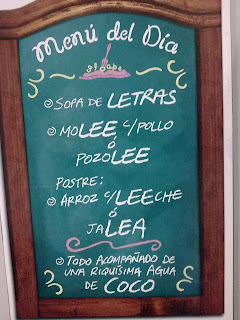 Menú del Día
SOPA DE LETRAS
MOLEE C/POLLO
ó
POZOLEE
POSTRE:
ARROZ C/LEECHE
ó
JALEA
TODO ACOMPAÑADO DE
UNA RIQUÍSIMA AGUA
DE COCO